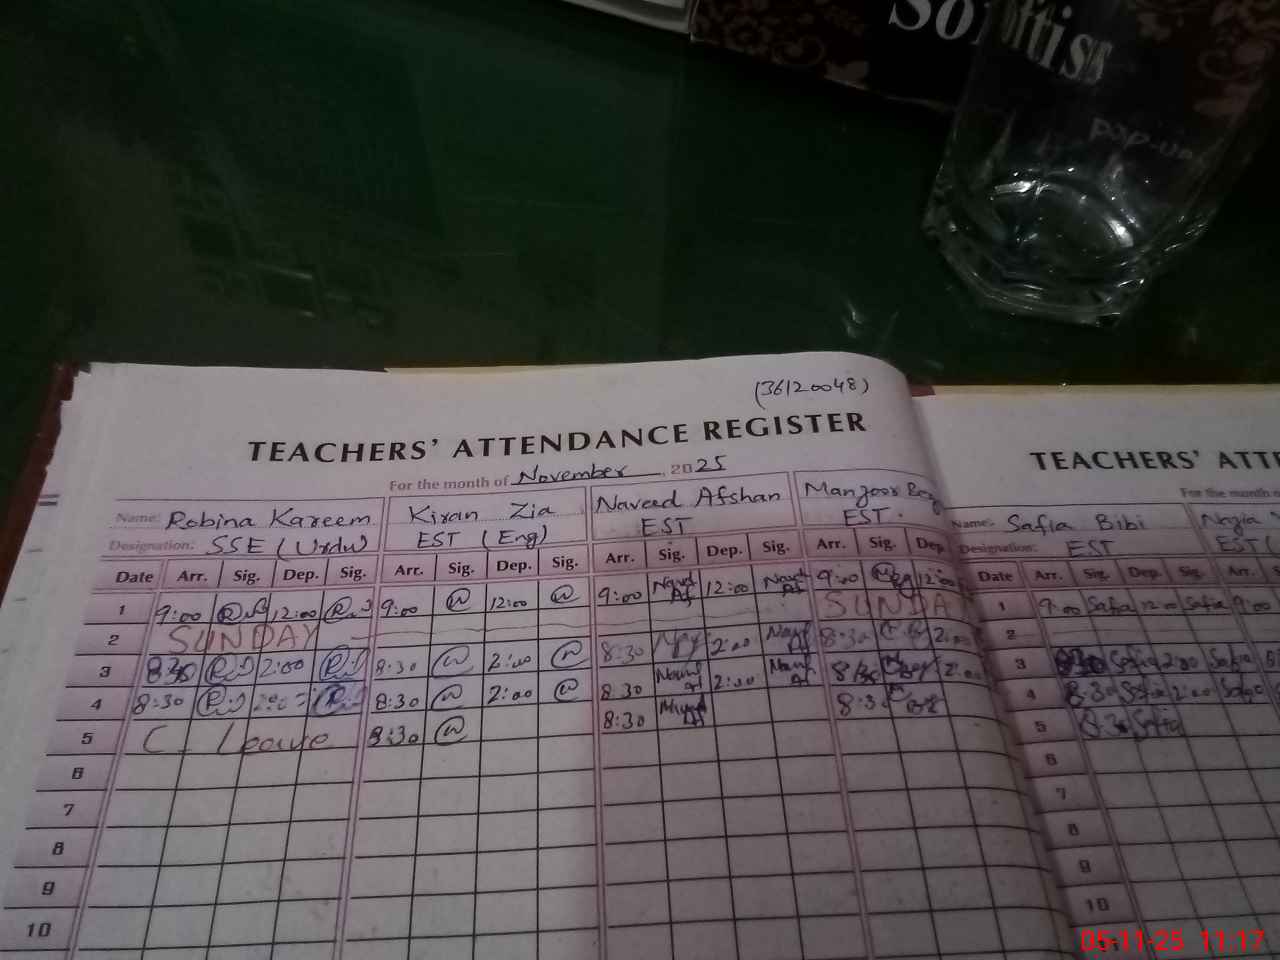 Softis
pop-up
(36120048)
TEACHERS' ATTENDANCE REGISTER
For the month of November, 2025
Name: Robina Kareem Kiran Zia Naveed Afshan Manzoor
Designation: SSE (Urdu) EST (Eng) EST EST.
Date Arr. Sig. Dep. Sig. Arr. Sig. Dep. Sig. Arr. Sig. Dep. Sig. Arr. Sig. Dep.
1 9:00 12:00 9:00 12:00 9:00 12:00 9:00 12:00
2 SUNDAY SUNDA
3 8:30 2:00 8:30 2:00 8:30 2:00 8:30 2:00
4 8:30 2:00 8:30 2:00 8:30 2:00 8:30 2:00
5 C. Leave 8:30 8:30 8:30
6
7
8
9
10
TEACHERS' ATTE
For the month
Name: Safia Bibi Nazia
Designation: EST EST (
Date Arr. Sig. Dep. Sig. Arr.
1 9:00 Safia 12:00 Safia 9:00
2
3 8:30 Safia 2:00 Safia
4 8:30 Safia 2:00 Safia
5 8:30 Safia
6
7
8
9
10
05-11-25 11:17